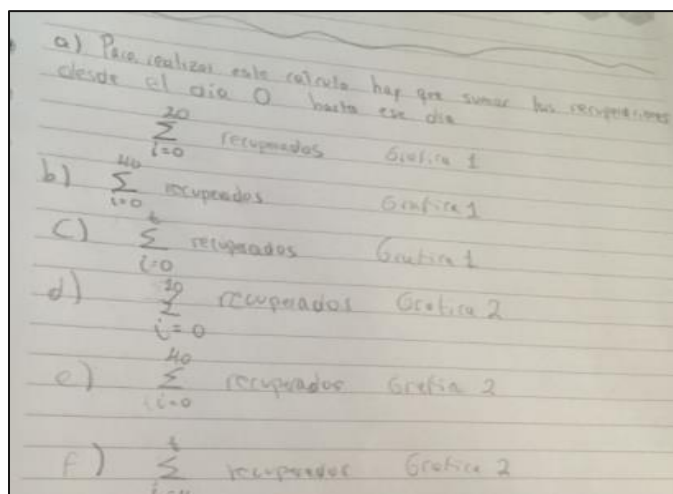 a) Para realizar este calculo hay que sumar las recuperaciones
desde el dia 0 hasta ese dia
20
Σ recuperados Grafica 1
i=0
40
b) Σ recuperados Grafica 1
i=0
t
c) Σ recuperados Grafica 1
i=0
20
d) Σ recuperados Grafica 2
i=0
40
e) Σ recuperados Grafia 2
i=0
t
f) Σ recuperados Grafica 2